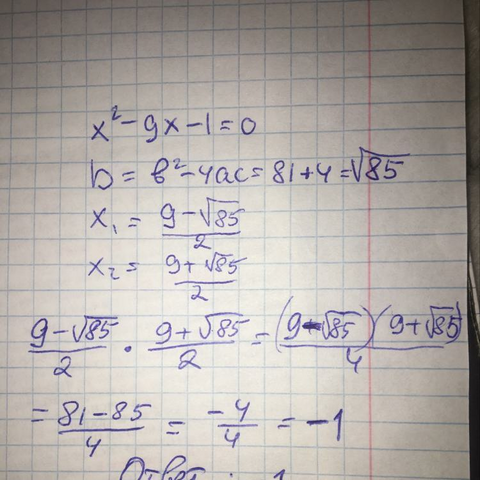 x² - 9x - 1 = 0
D = b² - 4ac = 81 + 4 = √85
x₁ = (9 - √85)/2
x₂ = (9 + √85)/2
(9 - √85)/2 · (9 + √85)/2 = (9 - √85)(9 + √85)/4
= (81 - 85)/4 = -4/4 = -1